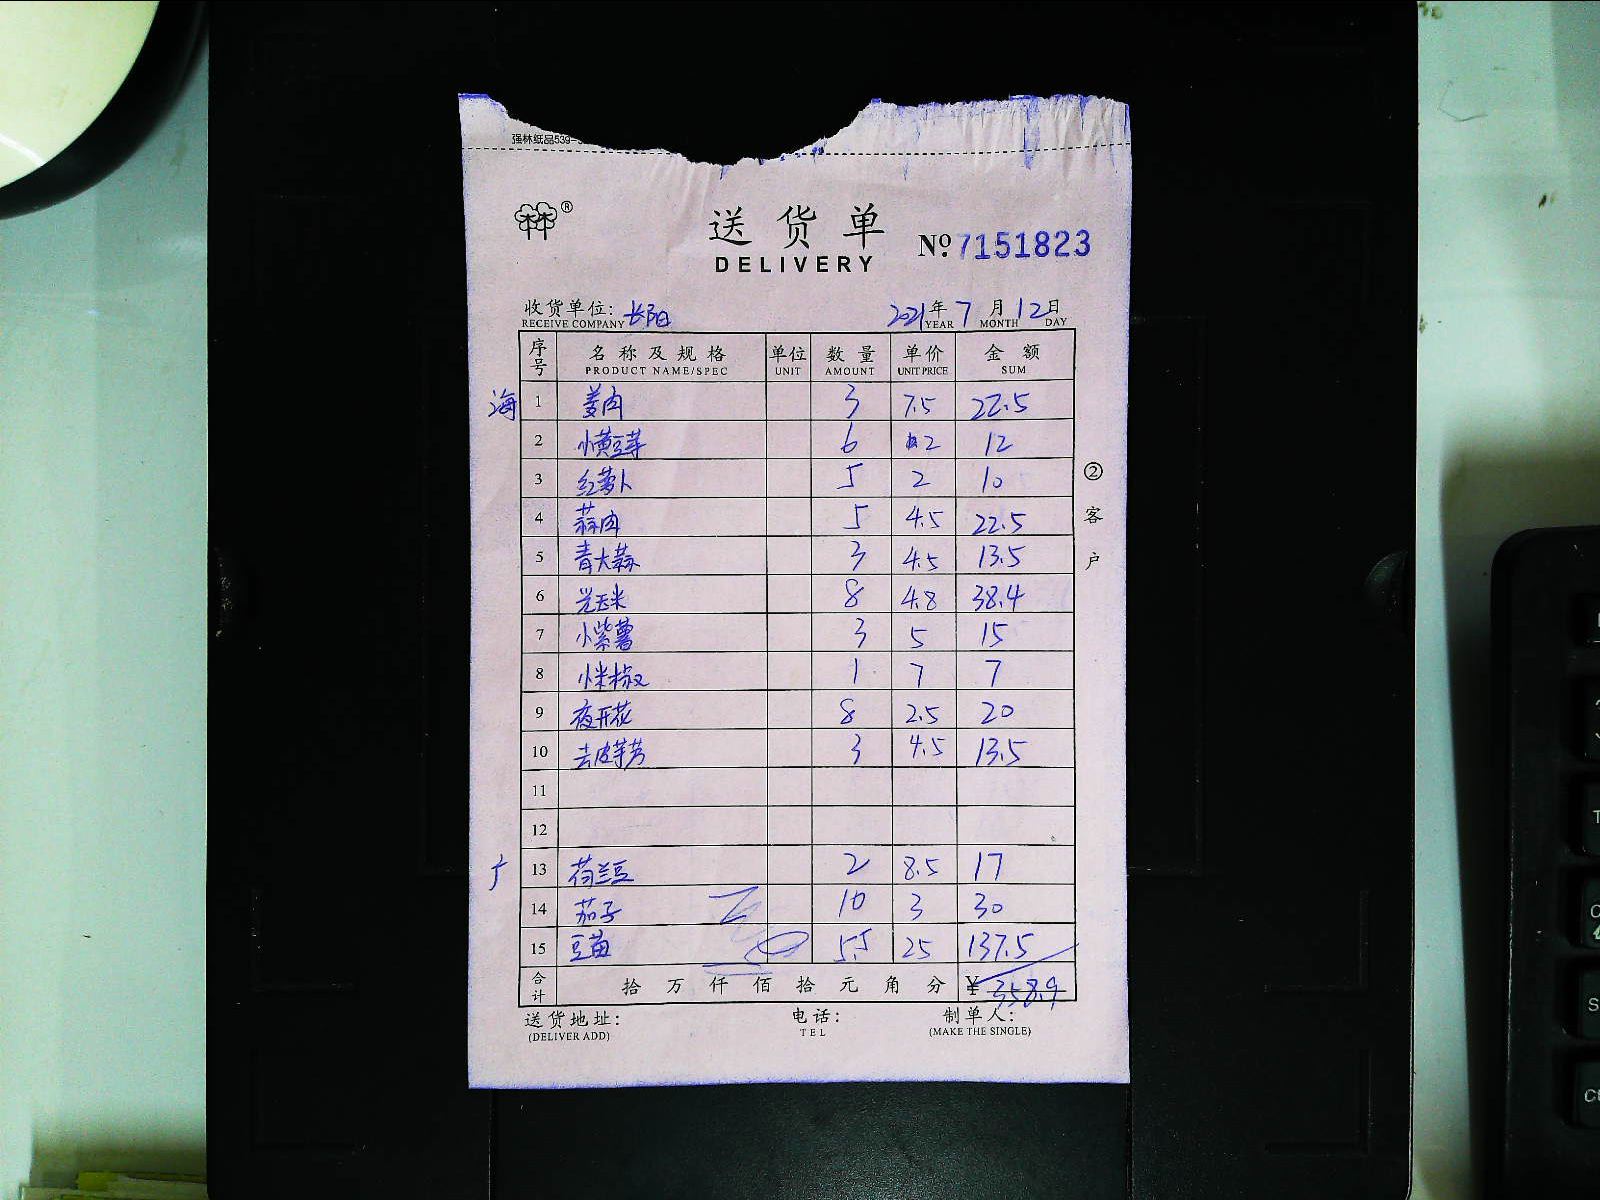 强林纸品539-
®
送货单
DELIVERY
№ 7151823
收货单位: 长阳 2021年7月12日
RECEIVE COMPANY YEAR MONTH DAY
序号 名称及规格 单位 数量 单价 金额
PRODUCT NAME/SPEC UNIT AMOUNT UNIT PRICE SUM
海 1 姜肉 3 7.5 22.5
2 小黄豆芽 6 2 12
3 红萝卜 5 2 10
4 蒜肉 5 4.5 22.5
5 青大蒜 3 4.5 13.5
6 光玉米 8 4.8 38.4
7 小紫薯 3 5 15
8 小米椒 1 7 7
9 夜开花 8 2.5 20
10 去皮芋艿 3 4.5 13.5
11
12
广 13 荷兰豆 2 8.5 17
14 茄子 10 3 30
15 豆苗 5.5 25 137.5
合计 拾万仟佰拾元角分 ¥358.9
送货地址: 电话: 制单人:
(DELIVER ADD) TEL (MAKE THE SINGLE)
②客户